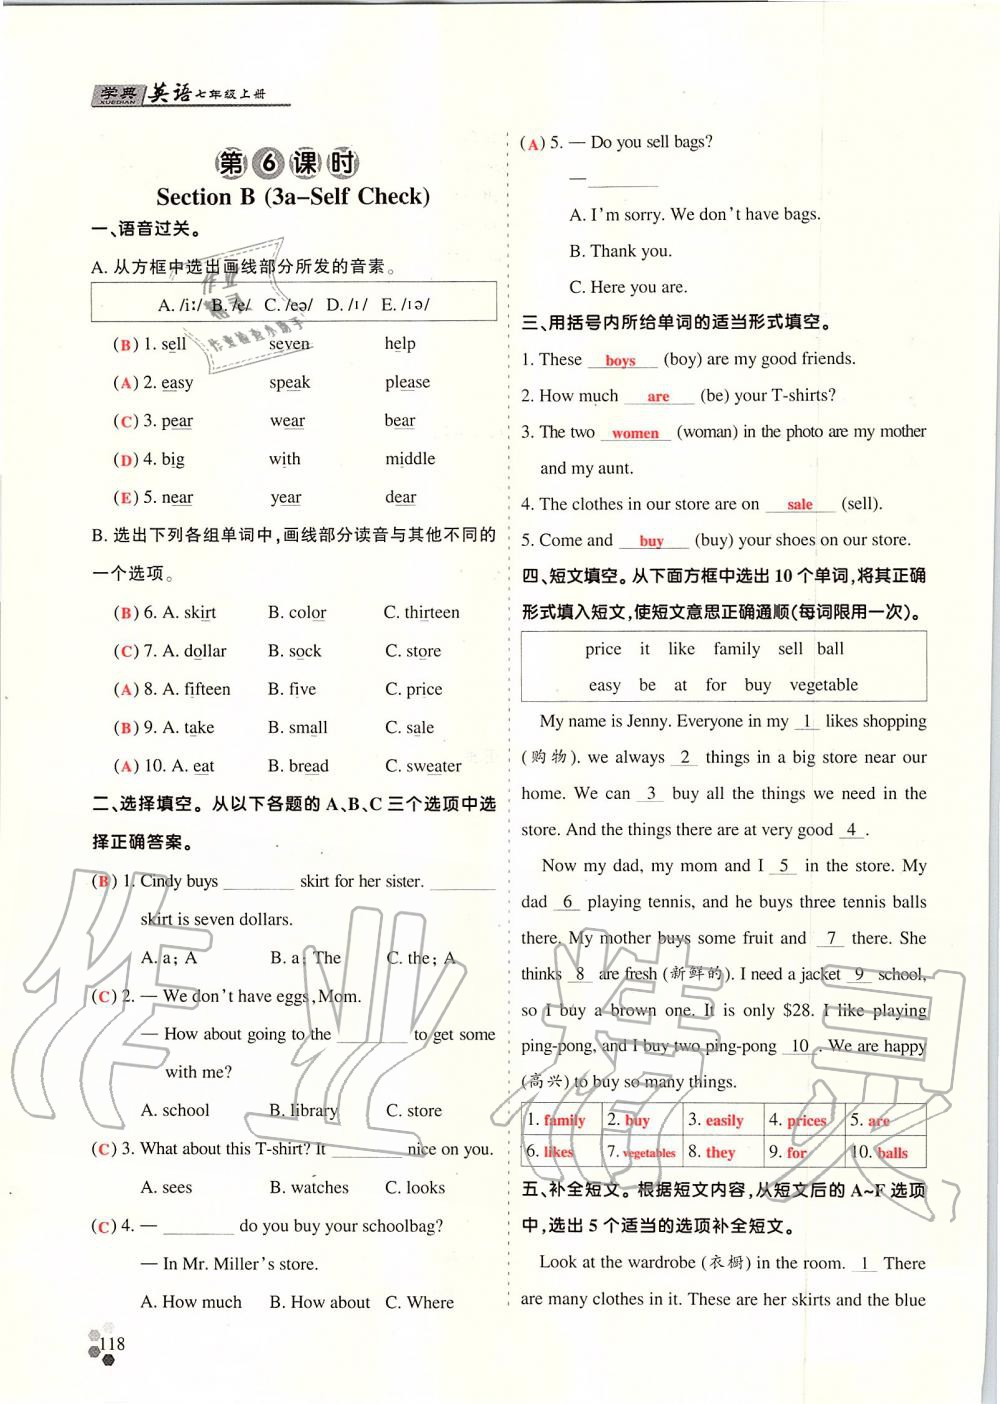 学典 英语七年级上册
XUEDIAN
第6课时
Section B (3a-Self Check)
一、语音过关。
A. 从方框中选出画线部分所发的音素。
A. /iː/ B. /e/ C. /eə/ D. /ɪ/ E. /ɪə/
(B) 1. sell seven help
(A) 2. easy speak please
(C) 3. pear wear bear
(D) 4. big with middle
(E) 5. near year dear
B. 选出下列各组单词中,画线部分读音与其他不同的
一个选项。
(B) 6. A. skirt B. color C. thirteen
(C) 7. A. dollar B. sock C. store
(A) 8. A. fifteen B. five C. price
(B) 9. A. take B. small C. sale
(A) 10. A. eat B. bread C. sweater
二、选择填空。从以下各题的 A、B、C 三个选项中选
择正确答案。
(B) 1. Cindy buys ________ skirt for her sister. ________
skirt is seven dollars.
A. a; A B. a; The C. the; A
(C) 2. — We don't have eggs, Mom.
— How about going to the ________ to get some
with me?
A. school B. library C. store
(C) 3. What about this T-shirt? It ________ nice on you.
A. sees B. watches C. looks
(C) 4. — ________ do you buy your schoolbag?
— In Mr. Miller's store.
A. How much B. How about C. Where
118
(A) 5. — Do you sell bags?
— ________
A. I'm sorry. We don't have bags.
B. Thank you.
C. Here you are.
三、用括号内所给单词的适当形式填空。
1. These boys (boy) are my good friends.
2. How much are (be) your T-shirts?
3. The two women (woman) in the photo are my mother
and my aunt.
4. The clothes in our store are on sale (sell).
5. Come and buy (buy) your shoes on our store.
四、短文填空。从下面方框中选出 10 个单词,将其正确
形式填入短文,使短文意思正确通顺(每词限用一次)。
price it like family sell ball
easy be at for buy vegetable
My name is Jenny. Everyone in my 1 likes shopping
(购物). we always 2 things in a big store near our
home. We can 3 buy all the things we need in the
store. And the things there are at very good 4 .
Now my dad, my mom and I 5 in the store. My
dad 6 playing tennis, and he buys three tennis balls
there. My mother buys some fruit and 7 there. She
thinks 8 are fresh (新鲜的). I need a jacket 9 school,
so I buy a brown one. It is only $28. I like playing
ping-pong, and I buy two ping-pong 10 . We are happy
(高兴) to buy so many things.
1. family 2. buy 3. easily 4. prices 5. are
6. likes 7. vegetables 8. they 9. for 10. balls
五、补全短文。根据短文内容,从短文后的 A~F 选项
中,选出 5 个适当的选项补全短文。
Look at the wardrobe (衣橱) in the room. 1 There
are many clothes in it. These are her skirts and the blue
作业精灵